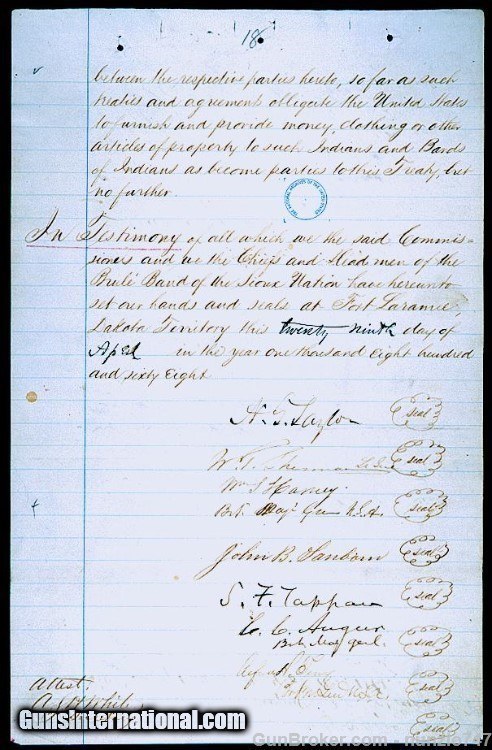 18
between the respective parties hereto, so far as such
treaties and agreements obligate the United States
to furnish and provide money, clothing or other
articles of property to such Indians and Bands
of Indians as become parties to this Treaty, but
no further.
In Testimony of all which we the said Commis-
sioners and we the Chiefs and Head men of the
Brulé Band of the Sioux Nation have hereunto
set our hands and seals at Fort Laramie,
Dakota Territory this twenty ninth day of
April in the year one thousand eight hundred
and sixty eight
N. G. Taylor seal
W. T. Sherman seal
Wm S. Harney
Bvt Maj Gen U.S.A. seal
John B. Sanborn seal
S. F. Tappan seal
C. C. Augur
Bvt Maj Genl. seal
seal
seal
Attest
A.S.H. White
GunsInternational.com
GunBroker.com